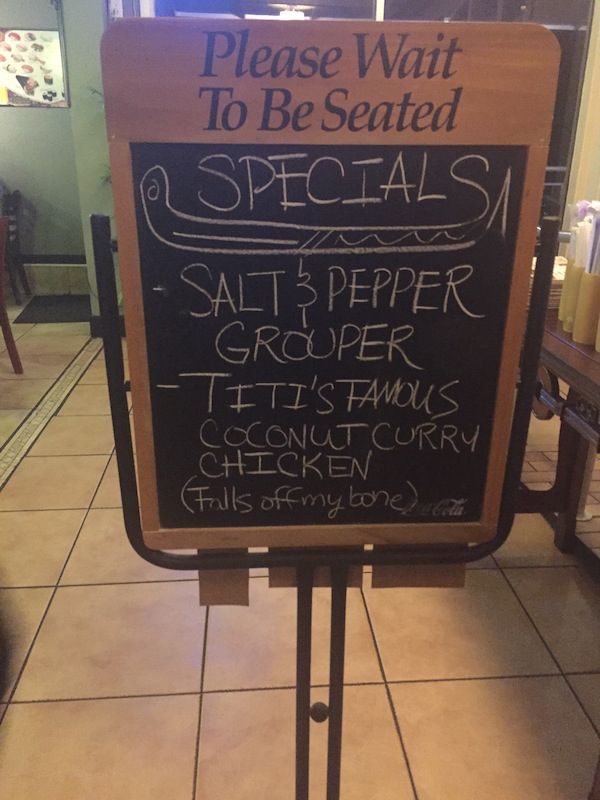 Please Wait
To Be Seated
SPECIALS
- SALT & PEPPER
GROUPER
- TITI'S FAMOUS
COCONUT CURRY
CHICKEN
(Falls off my bone)
Coca-Cola